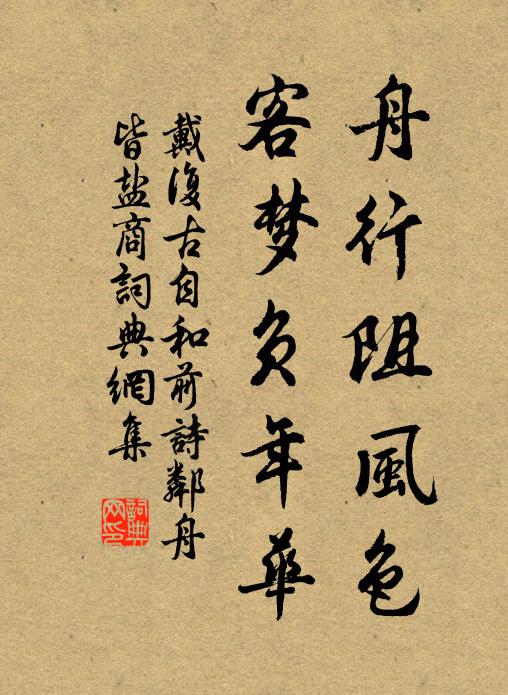 舟行阻風色
客梦負年華
戴復古自和前詩鄰舟
皆盐商詞典網集
詞典网印